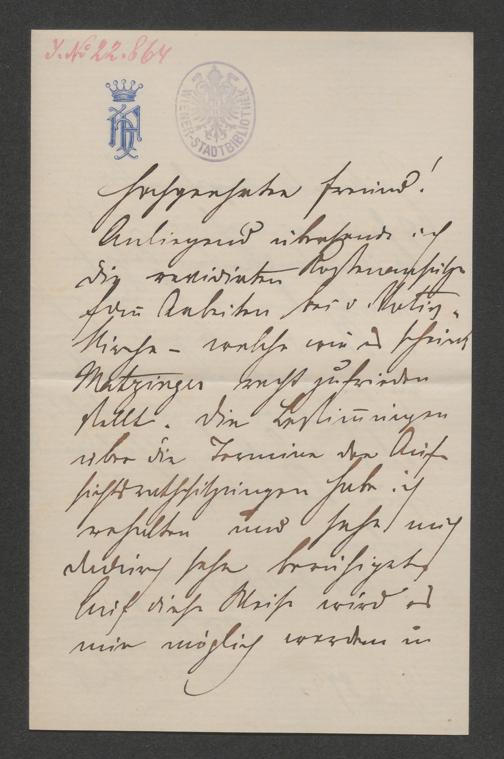 J. No 22.864
WIENER-STADTBIBLIOTHEK
Hochgeehrter Freund!
Anliegend übersende ich
die revidirten Kostenanschläge
Arbeiten bei d Votiv-
kirche – welche wie es scheint
Matzinger recht zufrieden
stellt. Die Bestimmungen
über die Termine der Auf-
sichtsrathssitzungen habe ich
erhalten und sehe mich
dadurch sehr beruhigt
Auf diese Weise wird es
mir möglich werden in